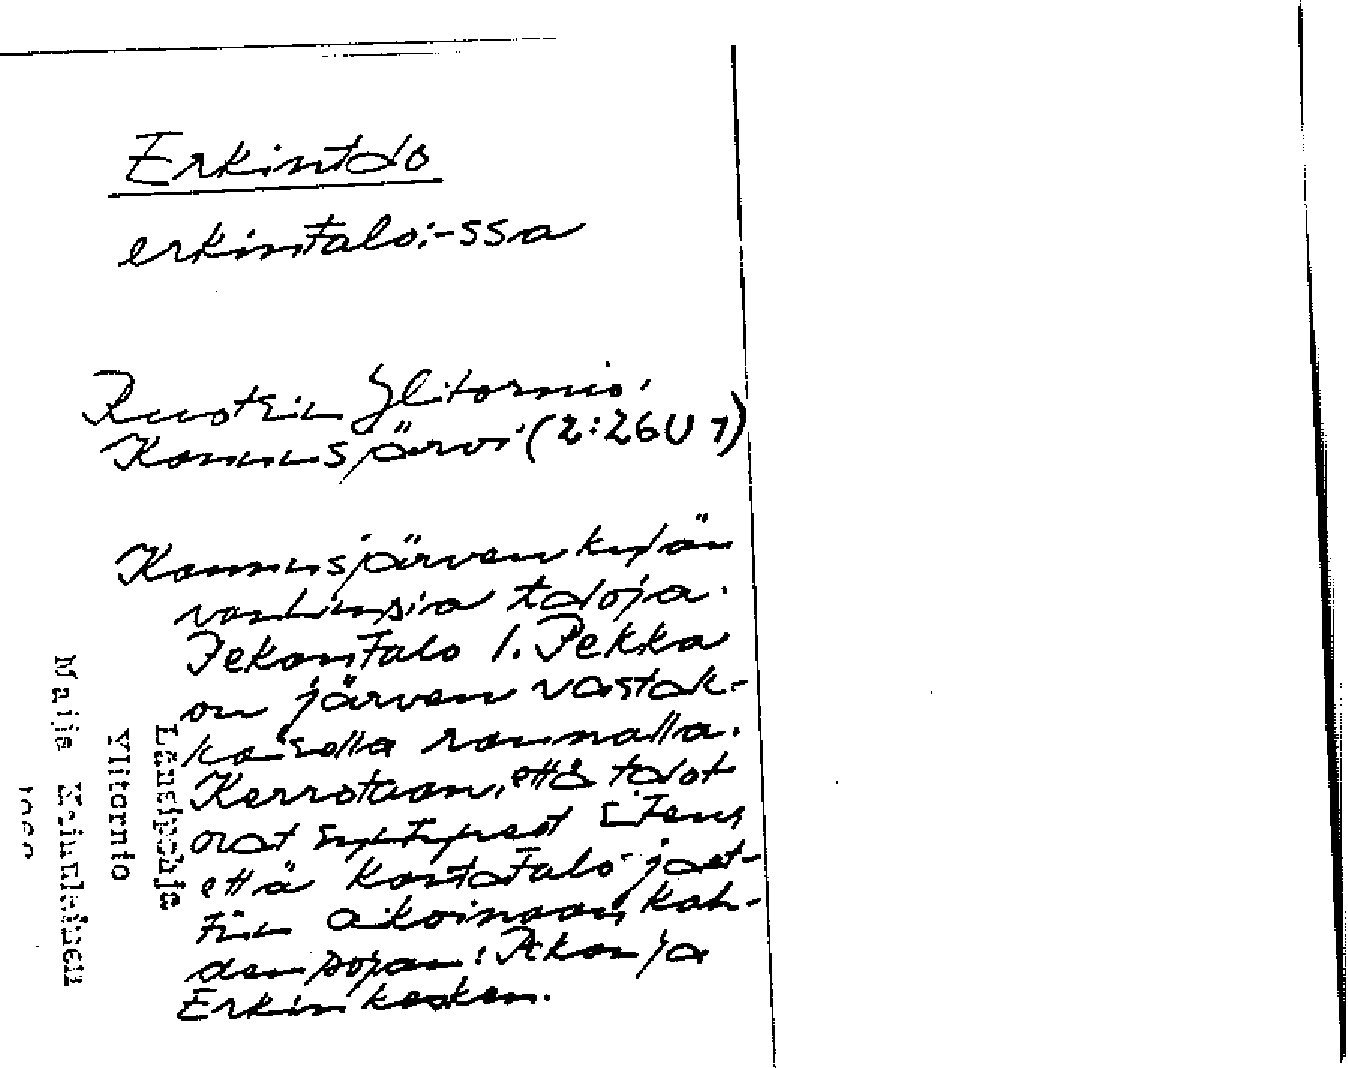 Erkintalo
erkintalo:-ssa
Ruotsin Ylitornio.
Kannusjärvi (2:26U 1)
Kannusjärven kylän
vanhimpia taloja.
Pekantalo l. Pekka
on järven vastak-
kaisella rannalla.
Kerrotaan, että talot
ovat syntyneet siten,
että kantatalo jaet-
tiin aikoinaan kah-
den pojan: Pekan ja
Erkin kesken.
Länsipohja
Ylitornio
Maija Keinänen